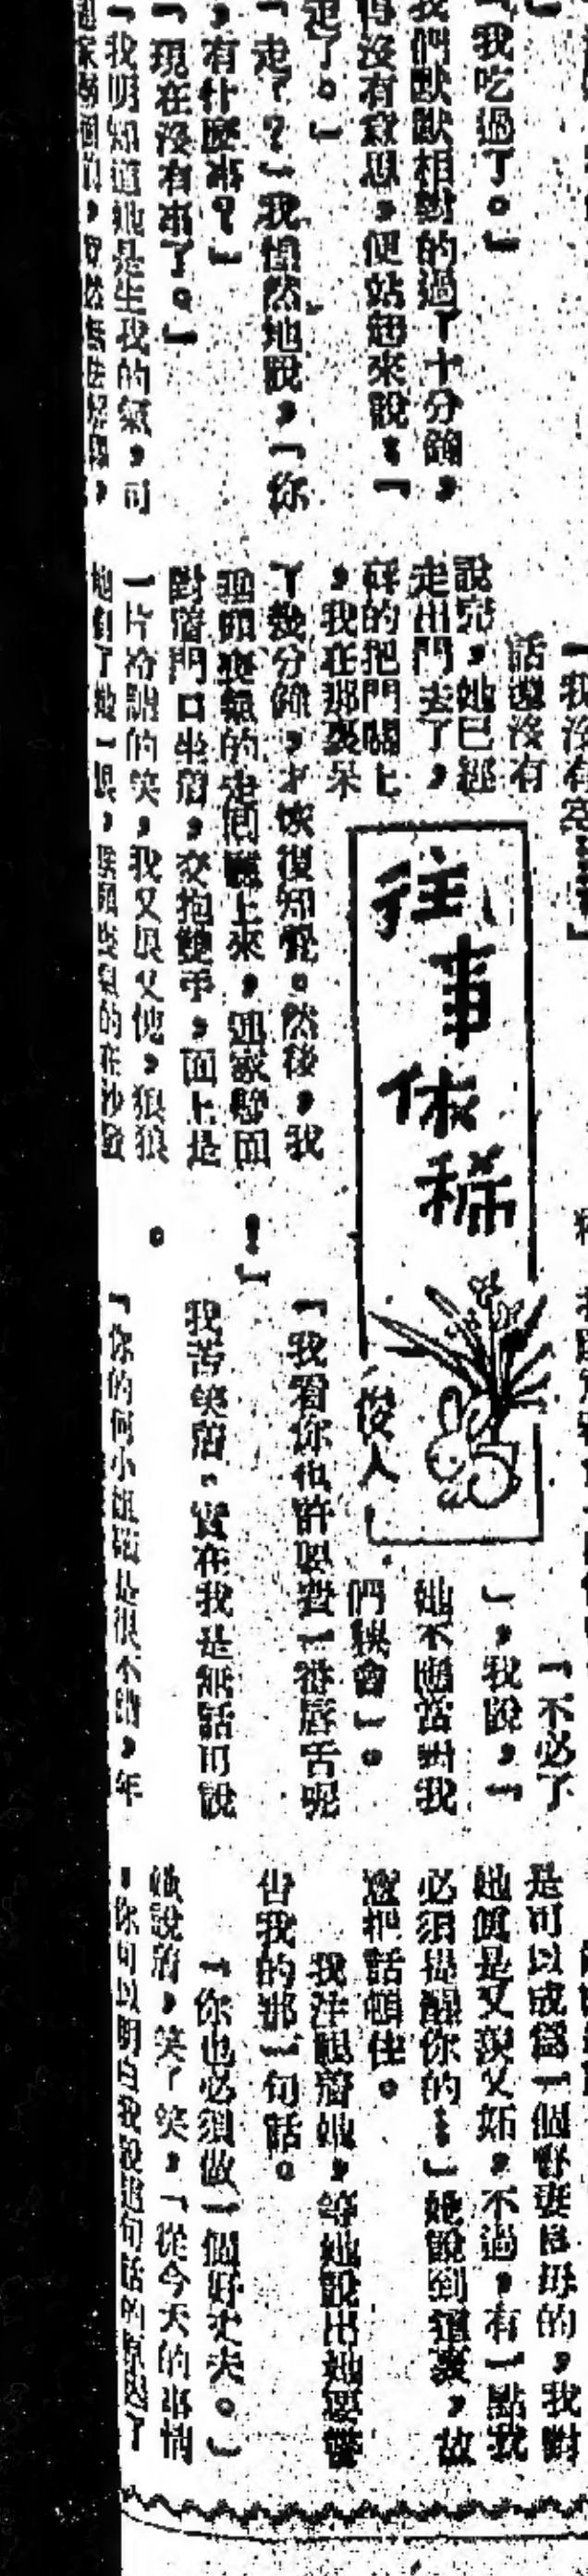 「我吃過了。」
我們默默相對的過了十分鐘，
得沒有意思，便站起來說：「
走了。」
「走？？」我愕然地說，「你
，有什麼事？」
「現在沒有事了。」
「我明知道她是生我的氣，可
話還沒有
說完，她已經
走出門去了，
砰的把門關上
，我在那裏呆
了幾分鐘，才恢復知覺。然後，我
垂頭喪氣的走回廳上來，
對着門口坐着，交抱雙手，面上是
一片冷諷的笑，我又恨又愧，狠狠
往事依稀
俊人
「不必了
」，我說，「
她不應當對我
們誤會」。
「我看你也許要費一番唇舌呢
！」
我苦笑着。實在我是無話可說
。
「你的何小姐確是很不錯，年
是可以成為一個賢妻良母的，我對
她真是又羨又妒，不過，有一點我
必須提醒你的：」她說到這裏，故
意把話頓住。
我注視着她，等她說出她要警
告我的那一句話。
「你也必須做一個好丈夫。」
她說着，笑了笑，「從今天的事情
，你可以明白我說這句話的原因了